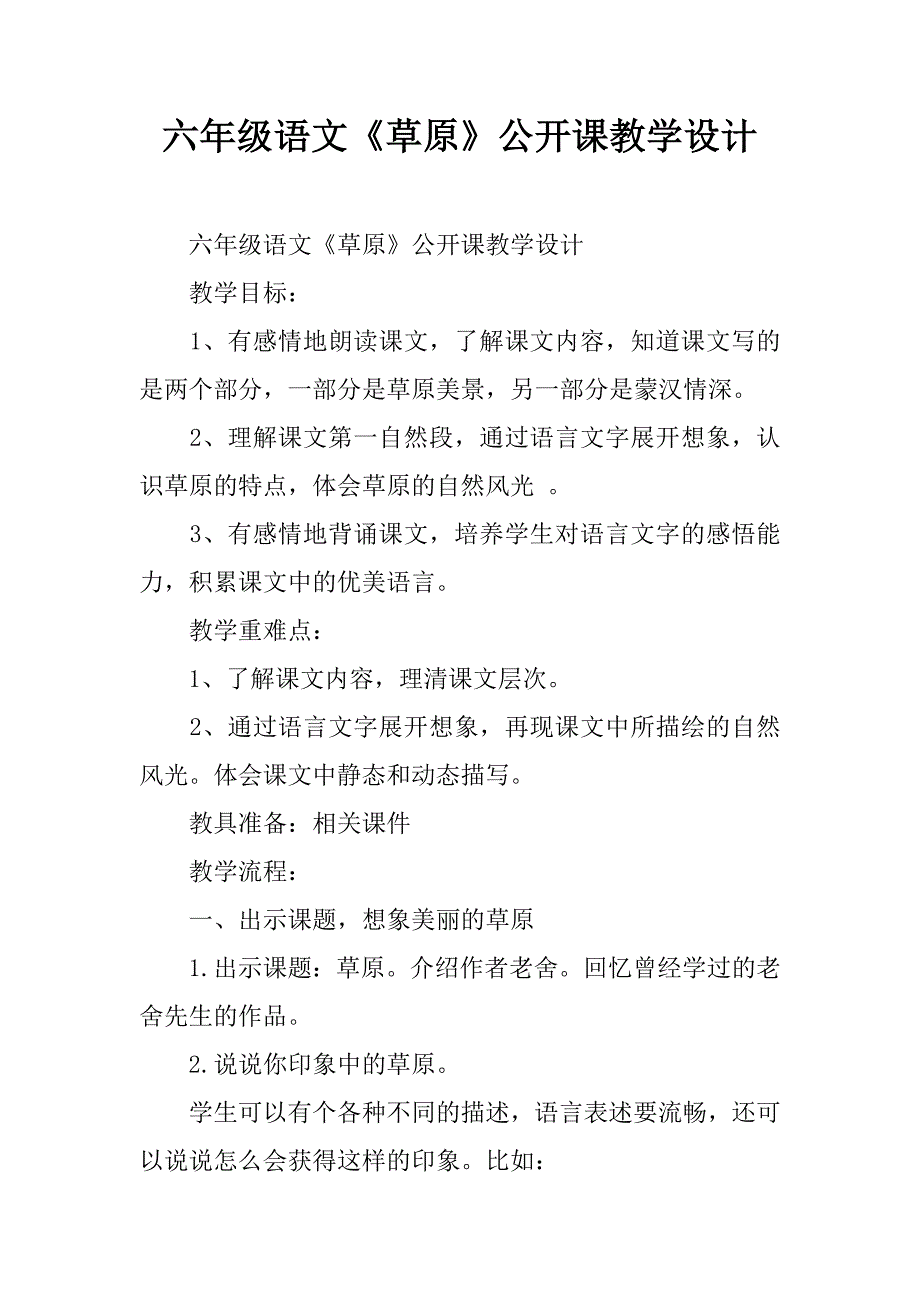 六年级语文《草原》公开课教学设计
六年级语文《草原》公开课教学设计
教学目标：
1、有感情地朗读课文，了解课文内容，知道课文写的
是两个部分，一部分是草原美景，另一部分是蒙汉情深。
2、理解课文第一自然段，通过语言文字展开想象，认
识草原的特点，体会草原的自然风光 。
3、有感情地背诵课文，培养学生对语言文字的感悟能
力，积累课文中的优美语言。
教学重难点：
1、了解课文内容，理清课文层次。
2、通过语言文字展开想象，再现课文中所描绘的自然
风光。体会课文中静态和动态描写。
教具准备：相关课件
教学流程：
一、出示课题，想象美丽的草原
1.出示课题：草原。介绍作者老舍。回忆曾经学过的老
舍先生的作品。
2.说说你印象中的草原。
学生可以有个各种不同的描述，语言表述要流畅，还可
以说说怎么会获得这样的印象。比如：